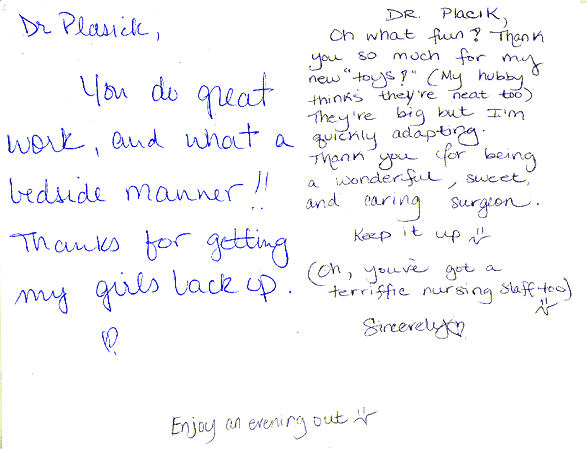 Dr Plasick,
You do great
work, and what a
bedside manner!!
Thanks for getting
my girls back up.
DR. Placik,
Oh what fun! Thank
you so much for my
new "toys!" (My hubby
thinks they're neat too)
They're big but I'm
quickly adapting.
Thank you for being
a wonderful, sweet,
and caring surgeon.
Keep it up
(Oh, you've got a
terriffic nursing staff too)
Sincerely
Enjoy an evening out